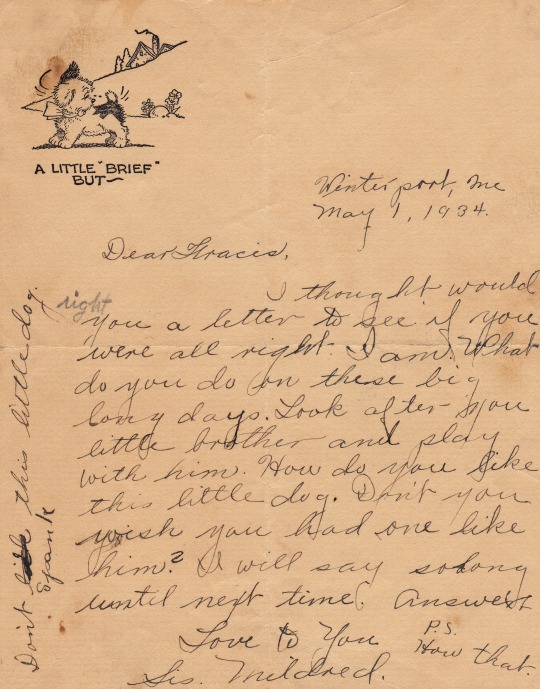 A LITTLE "BRIEF"
BUT~
Winterport, Me
May 1, 1934.
Dear Gracie,
I thought would
right
you a letter to see if you
were all right. I am. What
do you do on these big
long days. Look after you
little brother and play
with him. How do you like
this little dog. Don't you
wish you had one like
him? I will say solong
until next time. Answer
Love to You
Sis. Mildred.
P.S.
How that.
Don't this little dog.
Spank